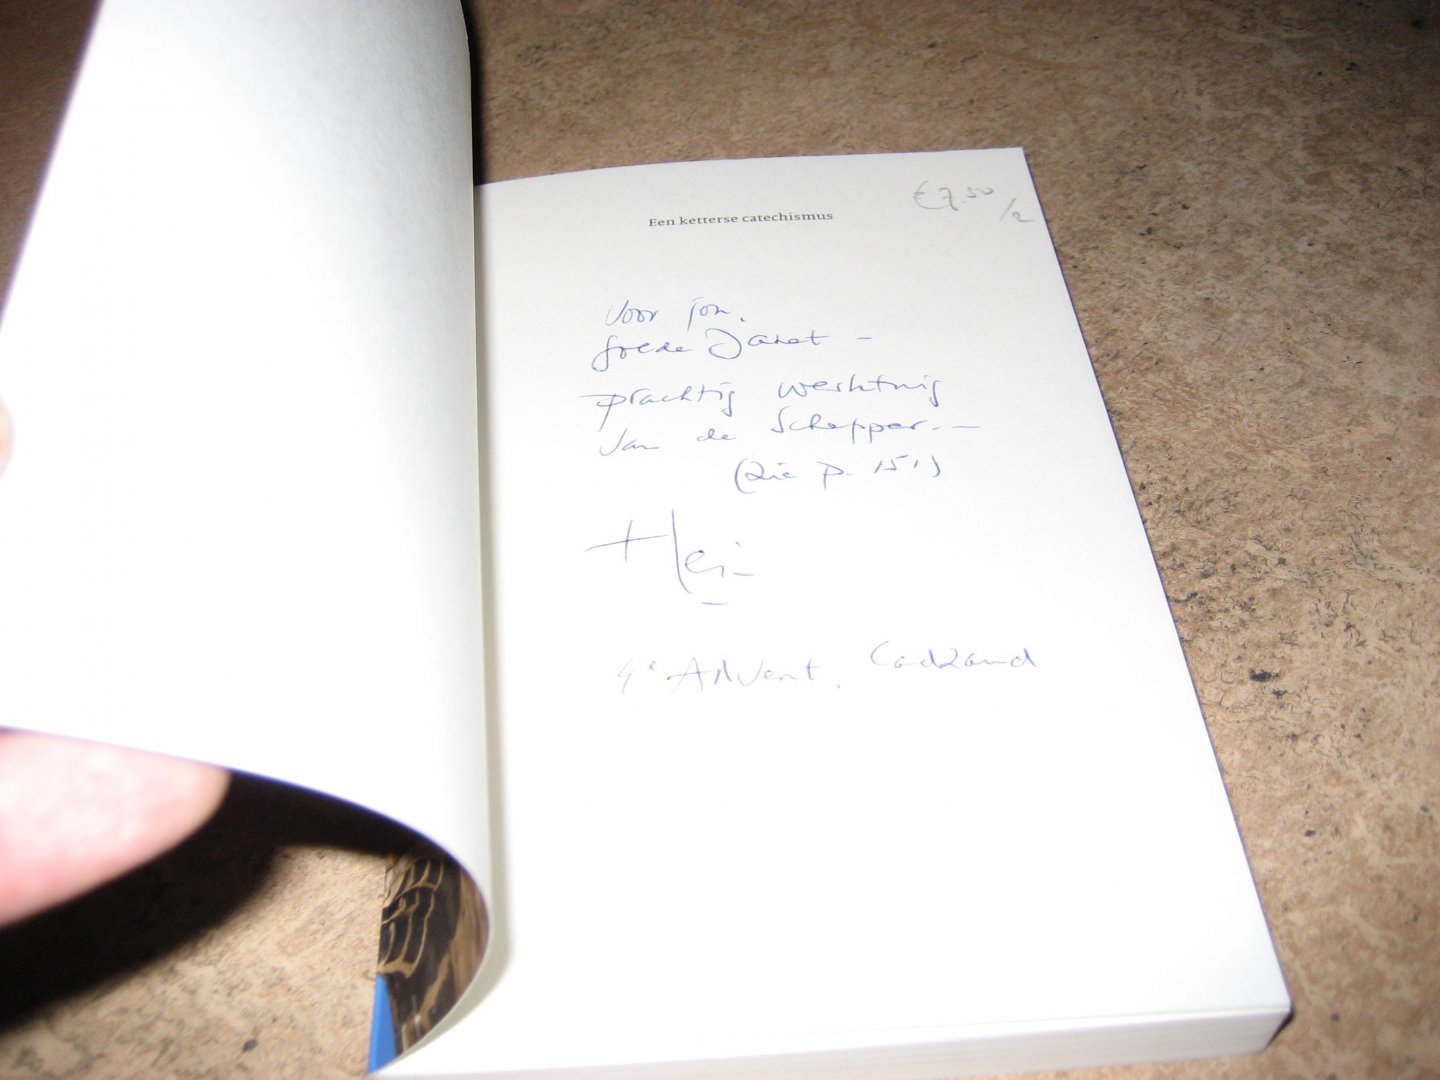 € 7.50
/2
Een ketterse catechismus
Voor jou,
goede Janet –
prachtig werktuig
van de Schepper. –
(zie p. 151)
Hein
4e Advent, Cadzand